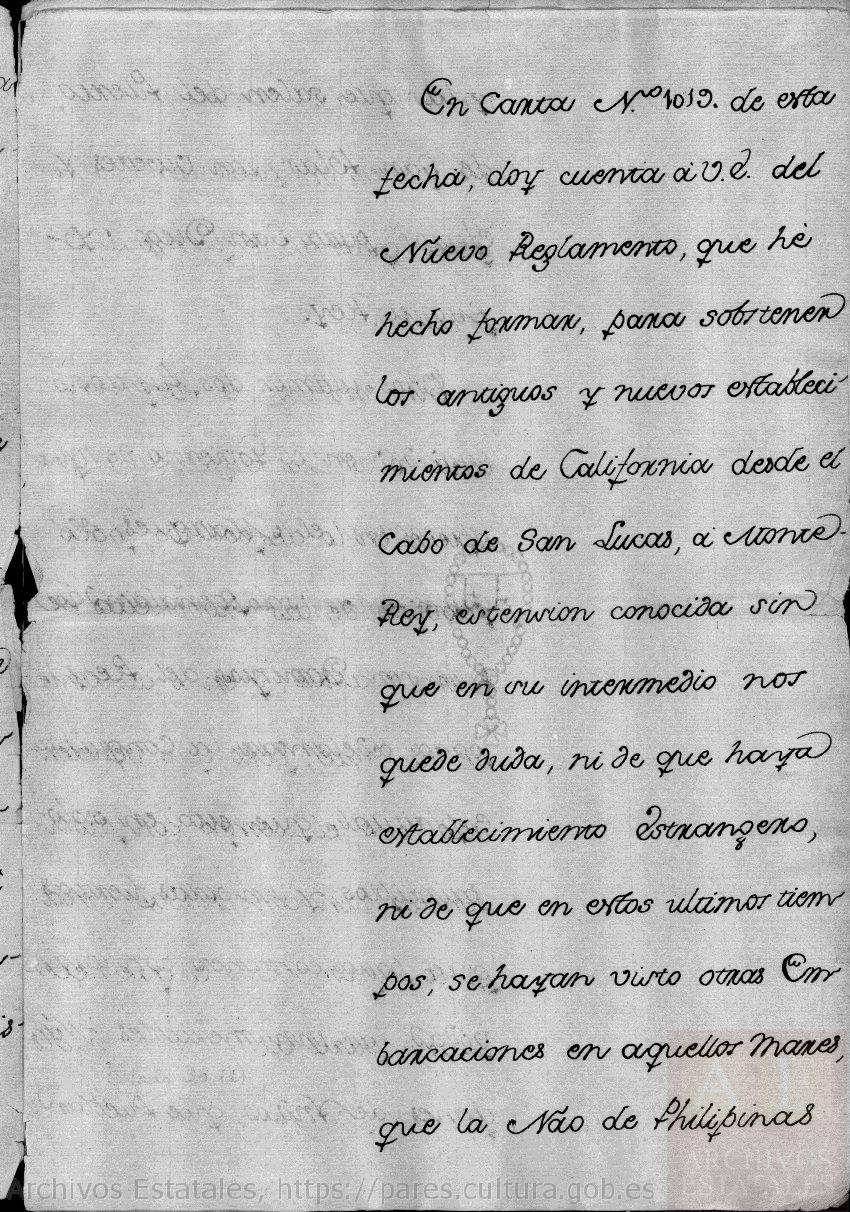 En Carta N.º 1019. de esta
fecha, doy cuenta à V.E. del
Nuevo Reglamento, que hè
hecho formar, para sobstener
los antiguos y nuevos estableci-
mientos de California desde el
Cabo de San Lucas, à Monte-
Rey, estension conocida sin
que en su intermedio nos
quede duda, ni de que haya
establecimiento Estrangero,
ni de que en estos ultimos tiem
pos, se hayan visto otras Em
barcaciones en aquellos Mares,
que la Não de Philipinas
Archivos Estatales, https://pares.cultura.gob.es
ARCHIVOS
ESTATALES